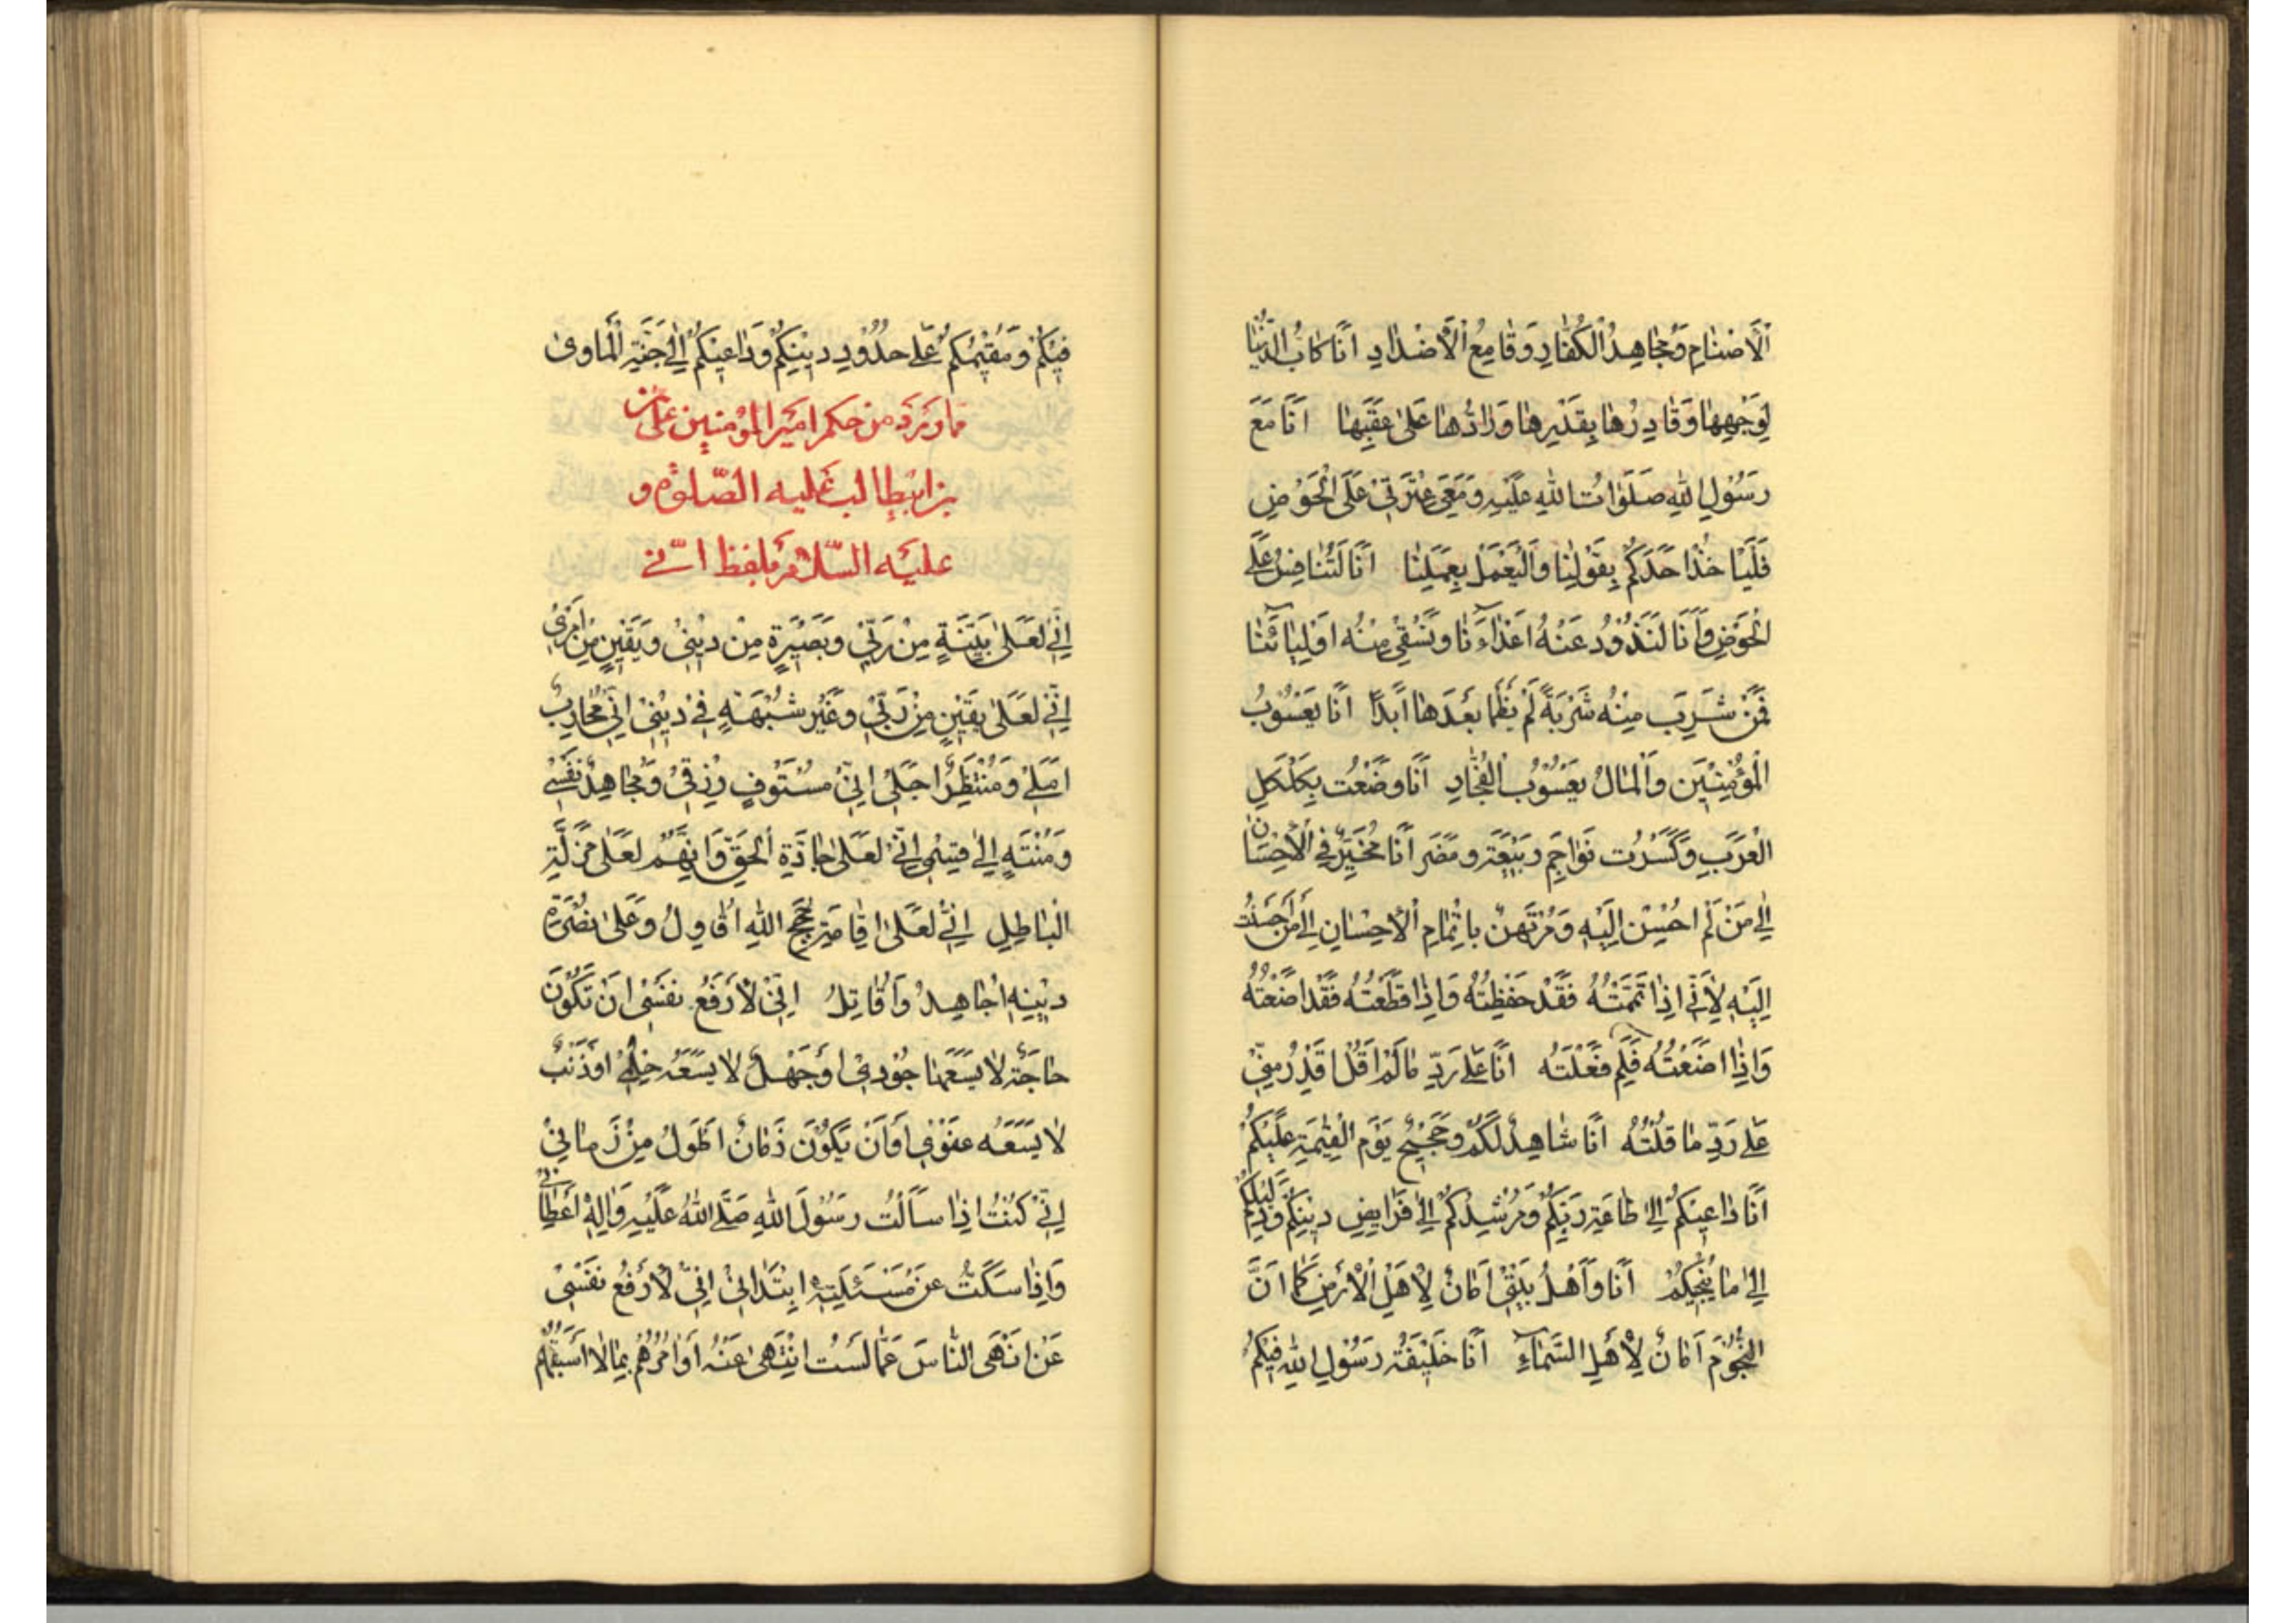 الْأَصْنَامِ وَمُجَاهِدُ الْكُفَّارِ وَقَامِعُ الْأَضْدَادِ أَنَا كَابُّ الدُّنْيَا
لِوَجْهِهَا وَقَادِرُهَا بِقَدْرِهَا وَرَادُّهَا عَلَى عَقِبِهَا أَنَا مَعَ
رَسُولِ اللهِ صَلَوَاتُ اللهِ عَلَيْهِ وَمَعِي عِتْرَتِي عَلَى الْحَوْضِ
فَلْيَأْخُذْ أَحَدُكُمْ بِقَوْلِنَا وَالْيَعْمَلْ بِعَمَلِنَا أَنَا لَنُنَافِسُ عَلَى
الْحَوْضِ وَأَنَا لَنَذُودُ عَنْهُ أَعْدَاءَنَا وَنَسْقِي مِنْهُ أَوْلِيَائَنَا
فَمَنْ شَرِبَ مِنْهُ شَرْبَةً لَمْ يَظْمَأْ بَعْدَهَا أَبَدًا أَنَا يَعْسُوبُ
الْمُؤْمِنِينَ وَالْمَالُ يَعْسُوبُ الْفُجَّارِ أَنَا وَضَعْتُ بِكَلْكَلِ
الْعَرَبِ وَكَسَرْتُ نَوَاجِمَ رَبِيعَةَ وَمُضَرَ أَنَا مُخَيَّرٌ فِي الْأِحْسَانِ
إِلَى مَنْ لَمْ أُحْسِنْ إِلَيْهِ وَمُرْتَهَنٌ بِإِتْمَامِ الْأِحْسَانِ إِلَى مَنْ أَحْسَنْتُ
إِلَيْهِ لِأَنِّي إِذَا تَمَمْتُهُ فَقَدْ حَفِظْتُهُ وَإِذَا قَطَعْتُهُ فَقَدْ أَضَعْتُهُ
وَإِذَا أَضَعْتُهُ فَلِمَ فَعَلْتُهُ أَنَا عَلَى رَدِّ مَا لَمْ أَقُلْ أَقْدَرُ مِنِّي
عَلَى رَدِّ مَا قُلْتُهُ أَنَا شَاهِدٌ لَكُمْ وَحَجِيجٌ يَوْمَ الْقِيٰمَةِ عَلَيْكُمْ
أَنَا دَاعِيكُمْ إِلَى طَاعَةِ رَبِّكُمْ وَمُرْشِدُكُمْ إِلَى فَرَايِضِ دِينِكُمْ وَدَلِيلُكُمْ
إِلَى مَا يُنْجِيكُمْ أَنَا وَأَهْلُ بَيْتِي أَمَانٌ لِأَهْلِ الْأَرْضِ كَمَا أَنَّ
النُّجُومَ أَمَانٌ لِأَهْلِ السَّمَاءِ أَنَا خَلِيفَةُ رَسُولِ اللهِ فِيكُمْ
فِيكُمْ وَمُقِيمُكُمْ عَلَى حُدُودِ دِينِكُمْ وَدَاعِيكُمْ إِلَى جَنَّةِ الْمَأْوَى
مما ورد من حكم أمير المؤمنين علي
بن ابيطالب عليه الصلوة و
عليه السلام بلفظ انّي
إِنِّي لَعَلَى بَيِّنَةٍ مِنْ رَبِّي وَبَصِيرَةٍ مِنْ دِينِي وَيَقِينٍ مِنْ أَمْرِي
إِنِّي لَعَلَى يَقِينٍ مِنْ رَبِّي وَغَيْرِ شُبْهَةٍ فِي دِينِي إِنِّي مُحَارِبٌ
أَمَلِي وَمُنْتَظِرٌ أَجَلِي إِنِّي مُسْتَوْفٍ رِزْقِي وَمُجَاهِدٌ نَفْسِي
وَمُنْتَهٍ إِلَى قِسْمِي إِنِّي لَعَلَى جَادَّةِ الْحَقِّ وَإِنَّهُمْ لَعَلَى مَزَلَّةِ
الْبَاطِلِ إِنِّي لَعَلَى إِقَامَةِ حُجَجِ اللهِ أُقَاوِلُ وَعَلَى نُصْرَةِ
دِينِهِ أُجَاهِدُ وَأُقَاتِلُ إِنِّي لَأَرْفَعُ نَفْسِي أَنْ تَكُونَ
حَاجَةٌ لَا يَسَعُهَا جُودِي أَوْ جَهْلٌ لَا يَسَعُهُ حِلْمِي أَوْ ذَنْبٌ
لَا يَسَعُهُ عَفْوِي أَوْ أَنْ يَكُونَ زَمَانٌ أَطْوَلُ مِنْ زَمَانِي
إِنِّي كُنْتُ إِذَا سَأَلْتُ رَسُولَ اللهِ صَلَّى اللهُ عَلَيْهِ وَآلِهِ أَعْطَانِي
وَإِذَا سَكَتُّ عَنْ مَسْئَلَتِهِ ابْتَدَانِي إِنِّي لَأَرْفَعُ نَفْسِي
عَنْ أَنْهَى النَّاسَ عَمَّا لَسْتُ أَنْتَهِي عَنْهُ أَوْ آمُرُهُمْ بِمَا لَا أَسْبِقُهُمْ